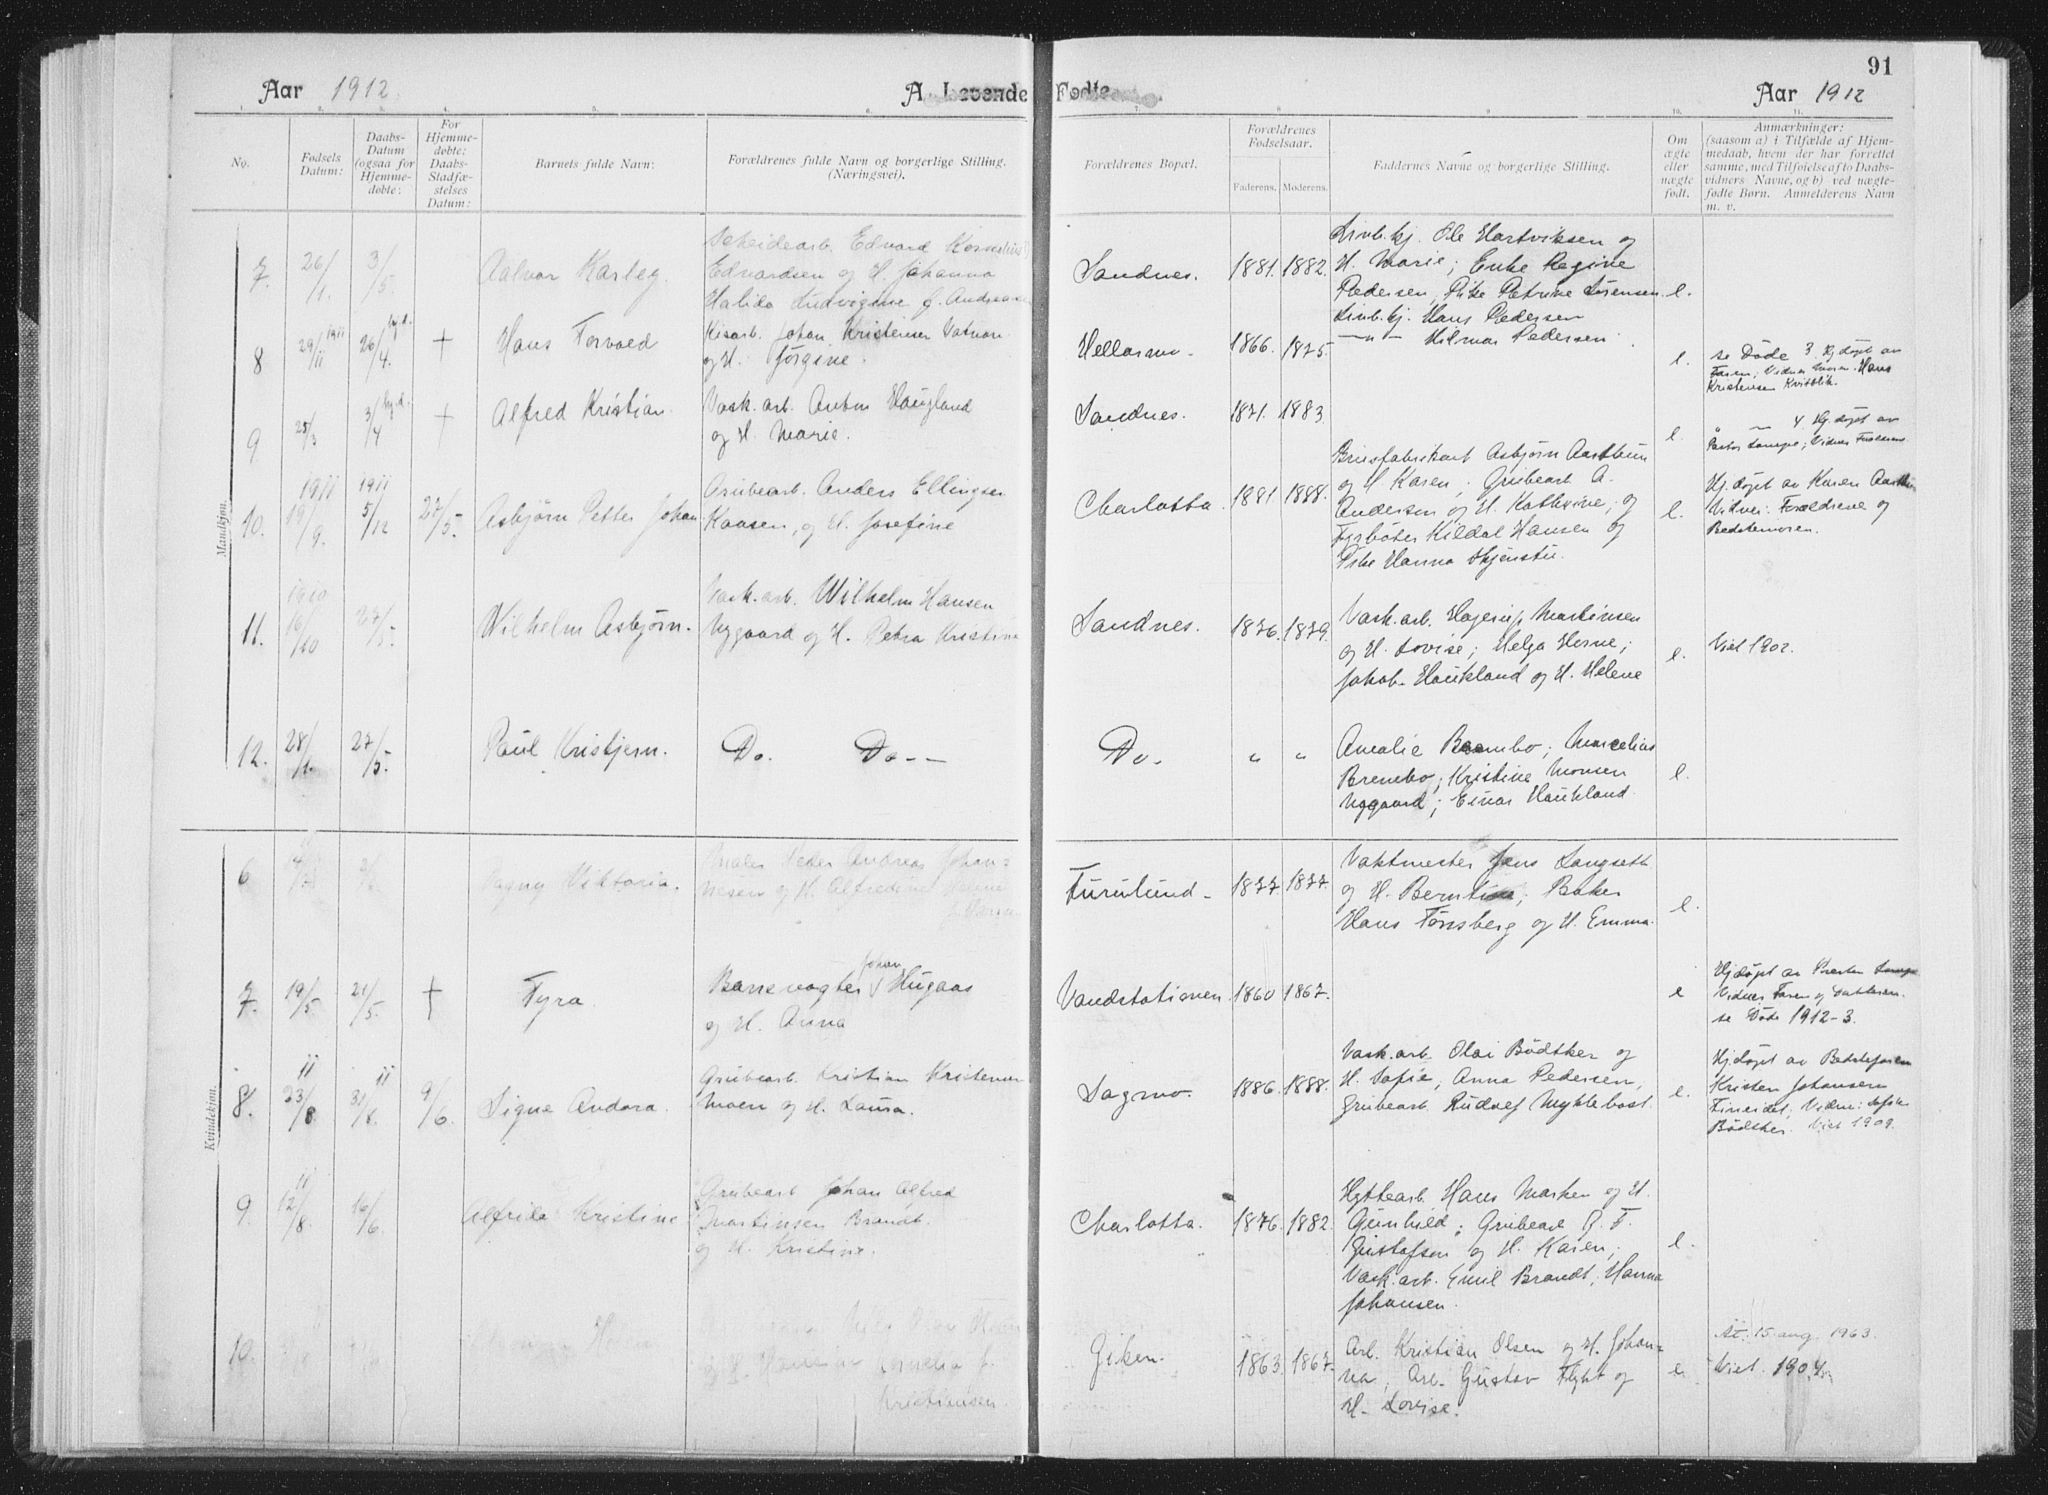 91
Aar 1912. A. Levende Fødte Aar 1912
1. 2. 3. 4. 5. 6. 7. 8. 9. 10. 11.
No.
Fødsels
Datum:
Daabs-
Datum
(ogsaa for
Hjemme-
døbte:
For
Hjemme-
døbte:
Daabs-
Stadfæ-
stelses
Datum:
Barnets fulde Navn:
Forældrenes fulde Navn og borgerlige Stilling.
(Næringsvei).
Forældrenes Bopæl.
Forældrenes
Fødselsaar.
Faderens. Moderens.
Faddernes Navne og borgerlige Stilling.
Om
ægte
eller
nægte
født.
Anmærkninger:
(saasom a) i Tilfælde af Hjem-
medaab, hvem der har forrettet
samme, med Tilføielse af to Daabs-
vidners Navne, og b) ved nægte-
fødte Børn. Anmelderens Navn
m. v.
Mandkjøn.
7. 26/1. 3/5. Aalvar Karleg
Scheidearb. Edvard Kornelius
Edvardsen og H. Johanna
Halida Ludvigine f. Andreasen
Sandnes. 1881. 1882.
Livb.bj. Ole Hartviksen og
H. Marie; Enke Regine
Pedersen, Pike Petrine Sørensen
Livb.bj. Hans Pedersen
— " — Hilmar Pedersen
e.
8 29/11 1911 26/4. hj.d. + Hans Torvald
Kisarb. Johan Kristenser Vatnan
og H. Jørgine.
Hellarmo. 1866. 1875. e.
se Døde 3. Hj døpt av
Faren; Vidner Moren. Hans
Kristensen Kvitblik.
9 25/3 3/4 hj.d. + Alfred Kristian.
Vask. arb. Anton Haugland
og H. Marie.
Sandnes. 1871. 1883. e.
" — 4 Hj. døpt av
Pastor Lampe; Vidner Forældrene
10. 1911 19/9. 1911 5/12 27/5. Asbjørn Petter Johan
Grubearb. Anders Ellingsen
Kaasen, og H. Josefine
Charlotta. 1881 1888.
Brusfabrikart Asbjørn Aastbun
og H Karen; Grubearb A.
Andersen og H. Kathrine; og
Fyrbøter Kildal Hansen og
Pike Hanna Skjenstu.
e.
Hj. døpt av Karen
Vidner: Forældrene og
Bedstemoren.
11. 1910 16/10 27/5. Wilhelm Asbjørn.
Vask. arb. Wilhelm Hansen
Nygaard og H. Petra Kristine
Sandnes. 1876. 1879.
Vask. arb. Hagerup Martinsen
og H. Lovise; Helga Herne;
Jakob Haukland og H. Helene
e. Viet 1902.
12. 28/1. 27/5. Paul Kristjern.
Do. Do. — —
Do. " "
Amalie Brembo; Marcelius
Brembo; Kristine Monsen
Nygaard; Einar Haukland.
e.
Kvindekjøn.
6 Dagny Viktoria.
Maler Peder Andreas Johan=
nesen og H. Alfredine
Furulund. 1877. 1877.
Vaktmester Jens Langseth
og H. Berntine; Baker
Hans Tønsberg og H. Emma.
e.
7. 19/5 21/5. + Tyra.
Banevogter Johan Hugaas
og H. Anna
Vandstationen. 1860 1867. e
Hjdøpt av Presten Lampe
Vidner Faren og Datteren.
se Døde 1912-3.
8. 11 23/8 11 31/8. 9/6. Signe Andora.
Grubearb. Kristian Kristensen
Moen og H. Laura.
Sagmo. 1886. 1888.
Vask. arb. Olai Bødtker og
H. Sofie, Anna Pedersen,
Grubearb. Rudolf Myklebost.
e.
Hjdøpt av Bedstefaren
Kristen Johansen
Fineidet; Vidne: Sofie
Bødtker. Viet 1909.
9. 11 12/8. 16/6. Alfrida Kristine
Grubearb Johan Alfred
Martinsen Brandt.
og H. Kristine.
Charlotta. 1876. 1882.
Hyttearb. Hans Marken og H.
Gunhild; Grubearb G. F.
Gustafsen og H. Karen;
Vask. arb. Emil Brandt, Hanna
Johansen.
e.
10. Helene
Kristiansen.
Giken. 1863. 1867.
Arb. Kristian Olsen og H. Johan=
na, Arb. Gustav Flykt og
H. Lovise.
e.
At. 15. aug. 1963.
Viet. 1907.